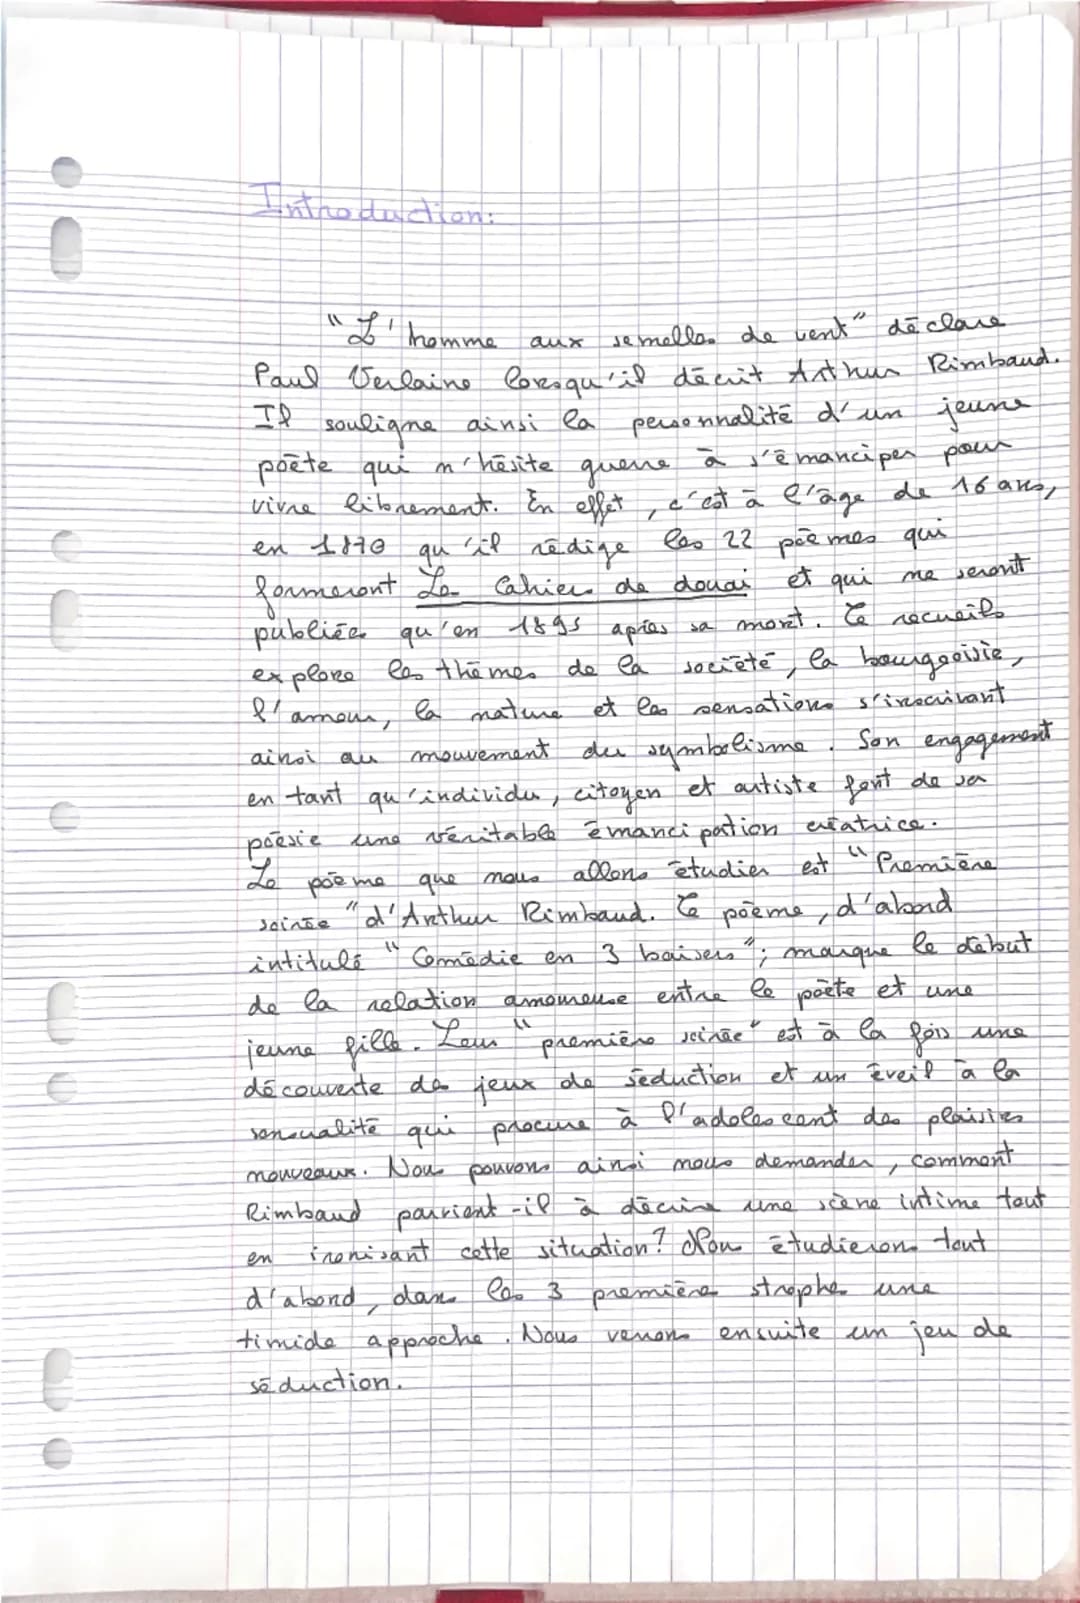 Introduction:
"L'homme aux semelles de vent" déclare
Paul Verlaine lorsqu'il décrit Arthur Rimbaud.
Il souligne ainsi la personnalité d'un jeune
poète qui n'hésite guere à s'émanciper pour
vivre librement. En effet, c'est à l'âge de 16 ans,
en 1870 qu'il rédige les 22 poèmes qui
formeront Le Cahier de douai et qui ne seront
publiées qu'en 1895 après sa mort. Ce recueils
explore les thèmes de la société, la bourgeoisie,
l'amour, la nature et les sensations s'inscrivant
ainsi au mouvement du symbolisme. Son engagement
en tant qu'individu, citoyen et artiste font de sa
poésie une véritable émancipation créatrice.
Le poème que nous allons étudier est "Première
soirée" d'Arthur Rimbaud. Ce poème, d'abord
intitulé "Comédie en 3 baisers"; marque le début
de la relation amoureuse entre le poète et une
jeune fille. Leur "première soirée" est à la fois une
découverte de jeux de séduction et un éveil à la
sensualité qui procure à l'adolescent des plaisirs
nouveaux. Nous pouvons ainsi nous demander, comment
Rimbaud parvient-il à décrire une scène intime tout
en ironisant cette situation? Nou étudieron tout
d'abord, dans les 3 première strophe une
timide approche. Nous verrons ensuite un jeu de
séduction.